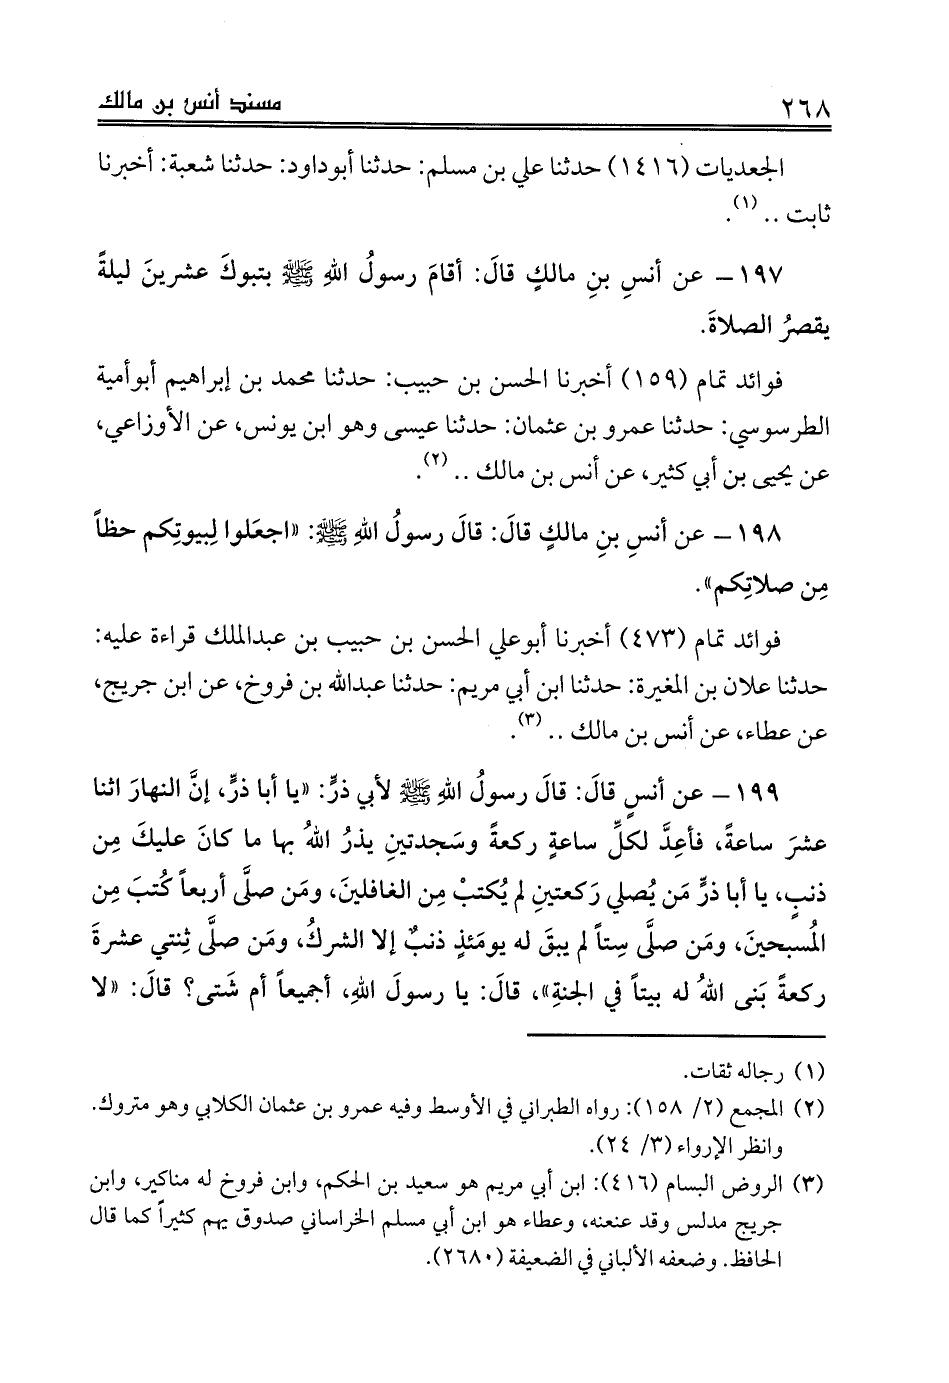 ٢٦٨ مسند أنس بن مالك
الجعديات (١٤١٦) حدثنا علي بن مسلم: حدثنا أبوداود: حدثنا شعبة: أخبرنا
ثابت .. (١).
١٩٧ - عن أنسِ بنِ مالكٍ قالَ: أقامَ رسولُ اللهِ ﷺ بتبوكَ عشرينَ ليلةً
يقصرُ الصلاةَ.
فوائد تمام (١٥٩) أخبرنا الحسن بن حبيب: حدثنا محمد بن إبراهيم أبوأمية
الطرسوسي: حدثنا عمرو بن عثمان: حدثنا عيسى وهو ابن يونس، عن الأوزاعي،
عن يحيى بن أبي كثير، عن أنس بن مالك .. (٢).
١٩٨ - عن أنسِ بنِ مالكٍ قالَ: قالَ رسولُ اللهِ ﷺ: «اجعَلوا لِبيوتِكم حظاً
مِن صلاتِكم».
فوائد تمام (٤٧٣) أخبرنا أبوعلي الحسن بن حبيب بن عبدالملك قراءة عليه:
حدثنا علان بن المغيرة: حدثنا ابن أبي مريم: حدثنا عبدالله بن فروخ، عن ابن جريج،
عن عطاء، عن أنس بن مالك .. (٣).
١٩٩ - عن أنسٍ قالَ: قالَ رسولُ اللهِ ﷺ لأبي ذرٍّ: «يا أبا ذرٍّ، إنَّ النهارَ اثنا
عشرَ ساعةً، فأعِدَّ لكلِّ ساعةٍ ركعةً وسَجدتينِ يذرُ اللهُ بها ما كانَ عليكَ مِن
ذنبٍ، يا أبا ذرٍّ مَن يُصلي رَكعتينِ لم يُكتبْ مِن الغافلينَ، ومَن صلَّى أربعاً كُتبَ مِن
المُسبحينَ، ومَن صلَّى سِتاً لم يبقَ له يومَئذٍ ذنبٌ إلا الشركُ، ومَن صلَّى ثِنتي عشرةَ
ركعةً بَنى اللهُ له بيتاً في الجنةِ»، قالَ: يا رسولَ اللهِ، أجميعاً أم شَتى؟ قالَ: «لا
(١) رجاله ثقات.
(٢) المجمع (٢/ ١٥٨): رواه الطبراني في الأوسط وفيه عمرو بن عثمان الكلابي وهو متروك.
وانظر الإرواء (٣/ ٢٤).
(٣) الروض البسام (٤١٦): ابن أبي مريم هو سعيد بن الحكم، وابن فروخ له مناكير، وابن
جريج مدلس وقد عنعنه، وعطاء هو ابن أبي مسلم الخراساني صدوق يهم كثيراً كما قال
الحافظ. وضعفه الألباني في الضعيفة (٢٦٨٠).